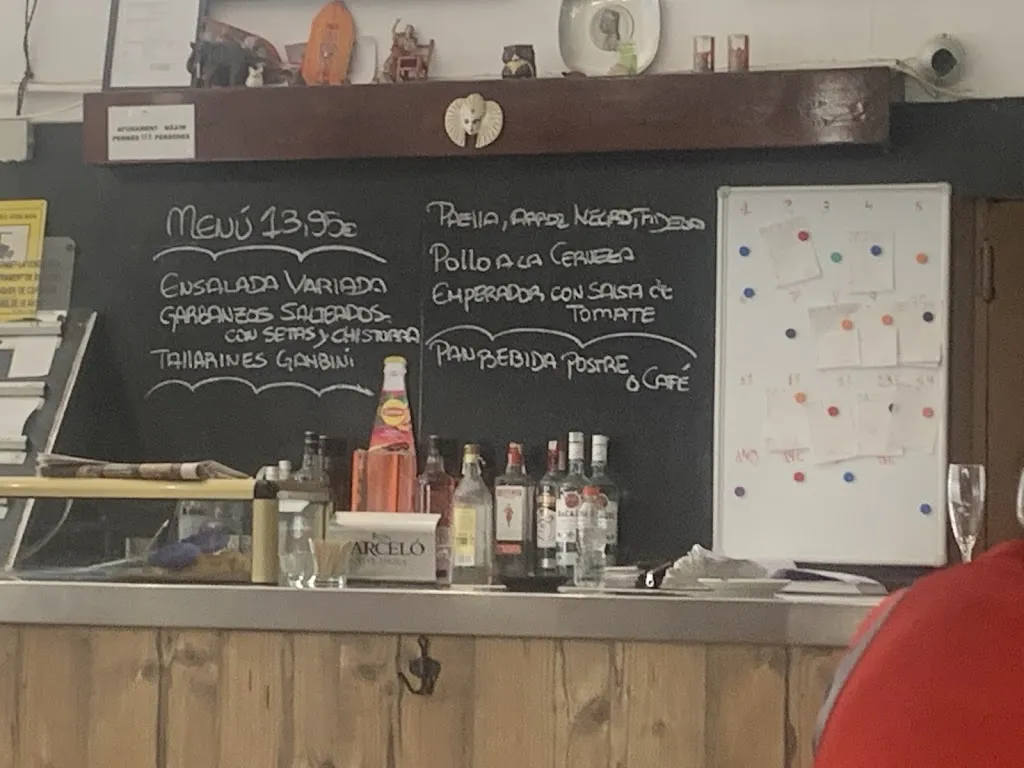 MENÚ 13,95€
ENSALADA VARIADA
GARBANZOS SALTEADOS
CON SETAS Y CHISTORRA
TALLARINES GAMBINI
PAELLA, ARROZ NEGRO, FIDEUA
POLLO A LA CERVEZA
EMPERADOR CON SALSA DE
TOMATE
PAN BEBIDA POSTRE
O CAFÉ
AFORAMENT MÀXIM
PERMÈS PERSONES
1 2 3 4 5
ARCELÓ